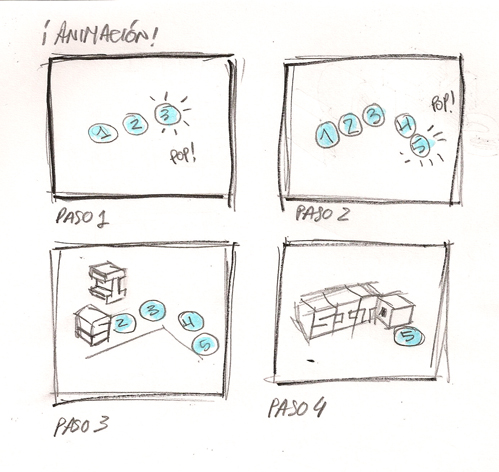 ¡ANIMACIÓN!
1 2 3
POP!
PASO 1
POP!
1 2 3 4 5
PASO 2
2 3 4 5
PASO 3
5
PASO 4